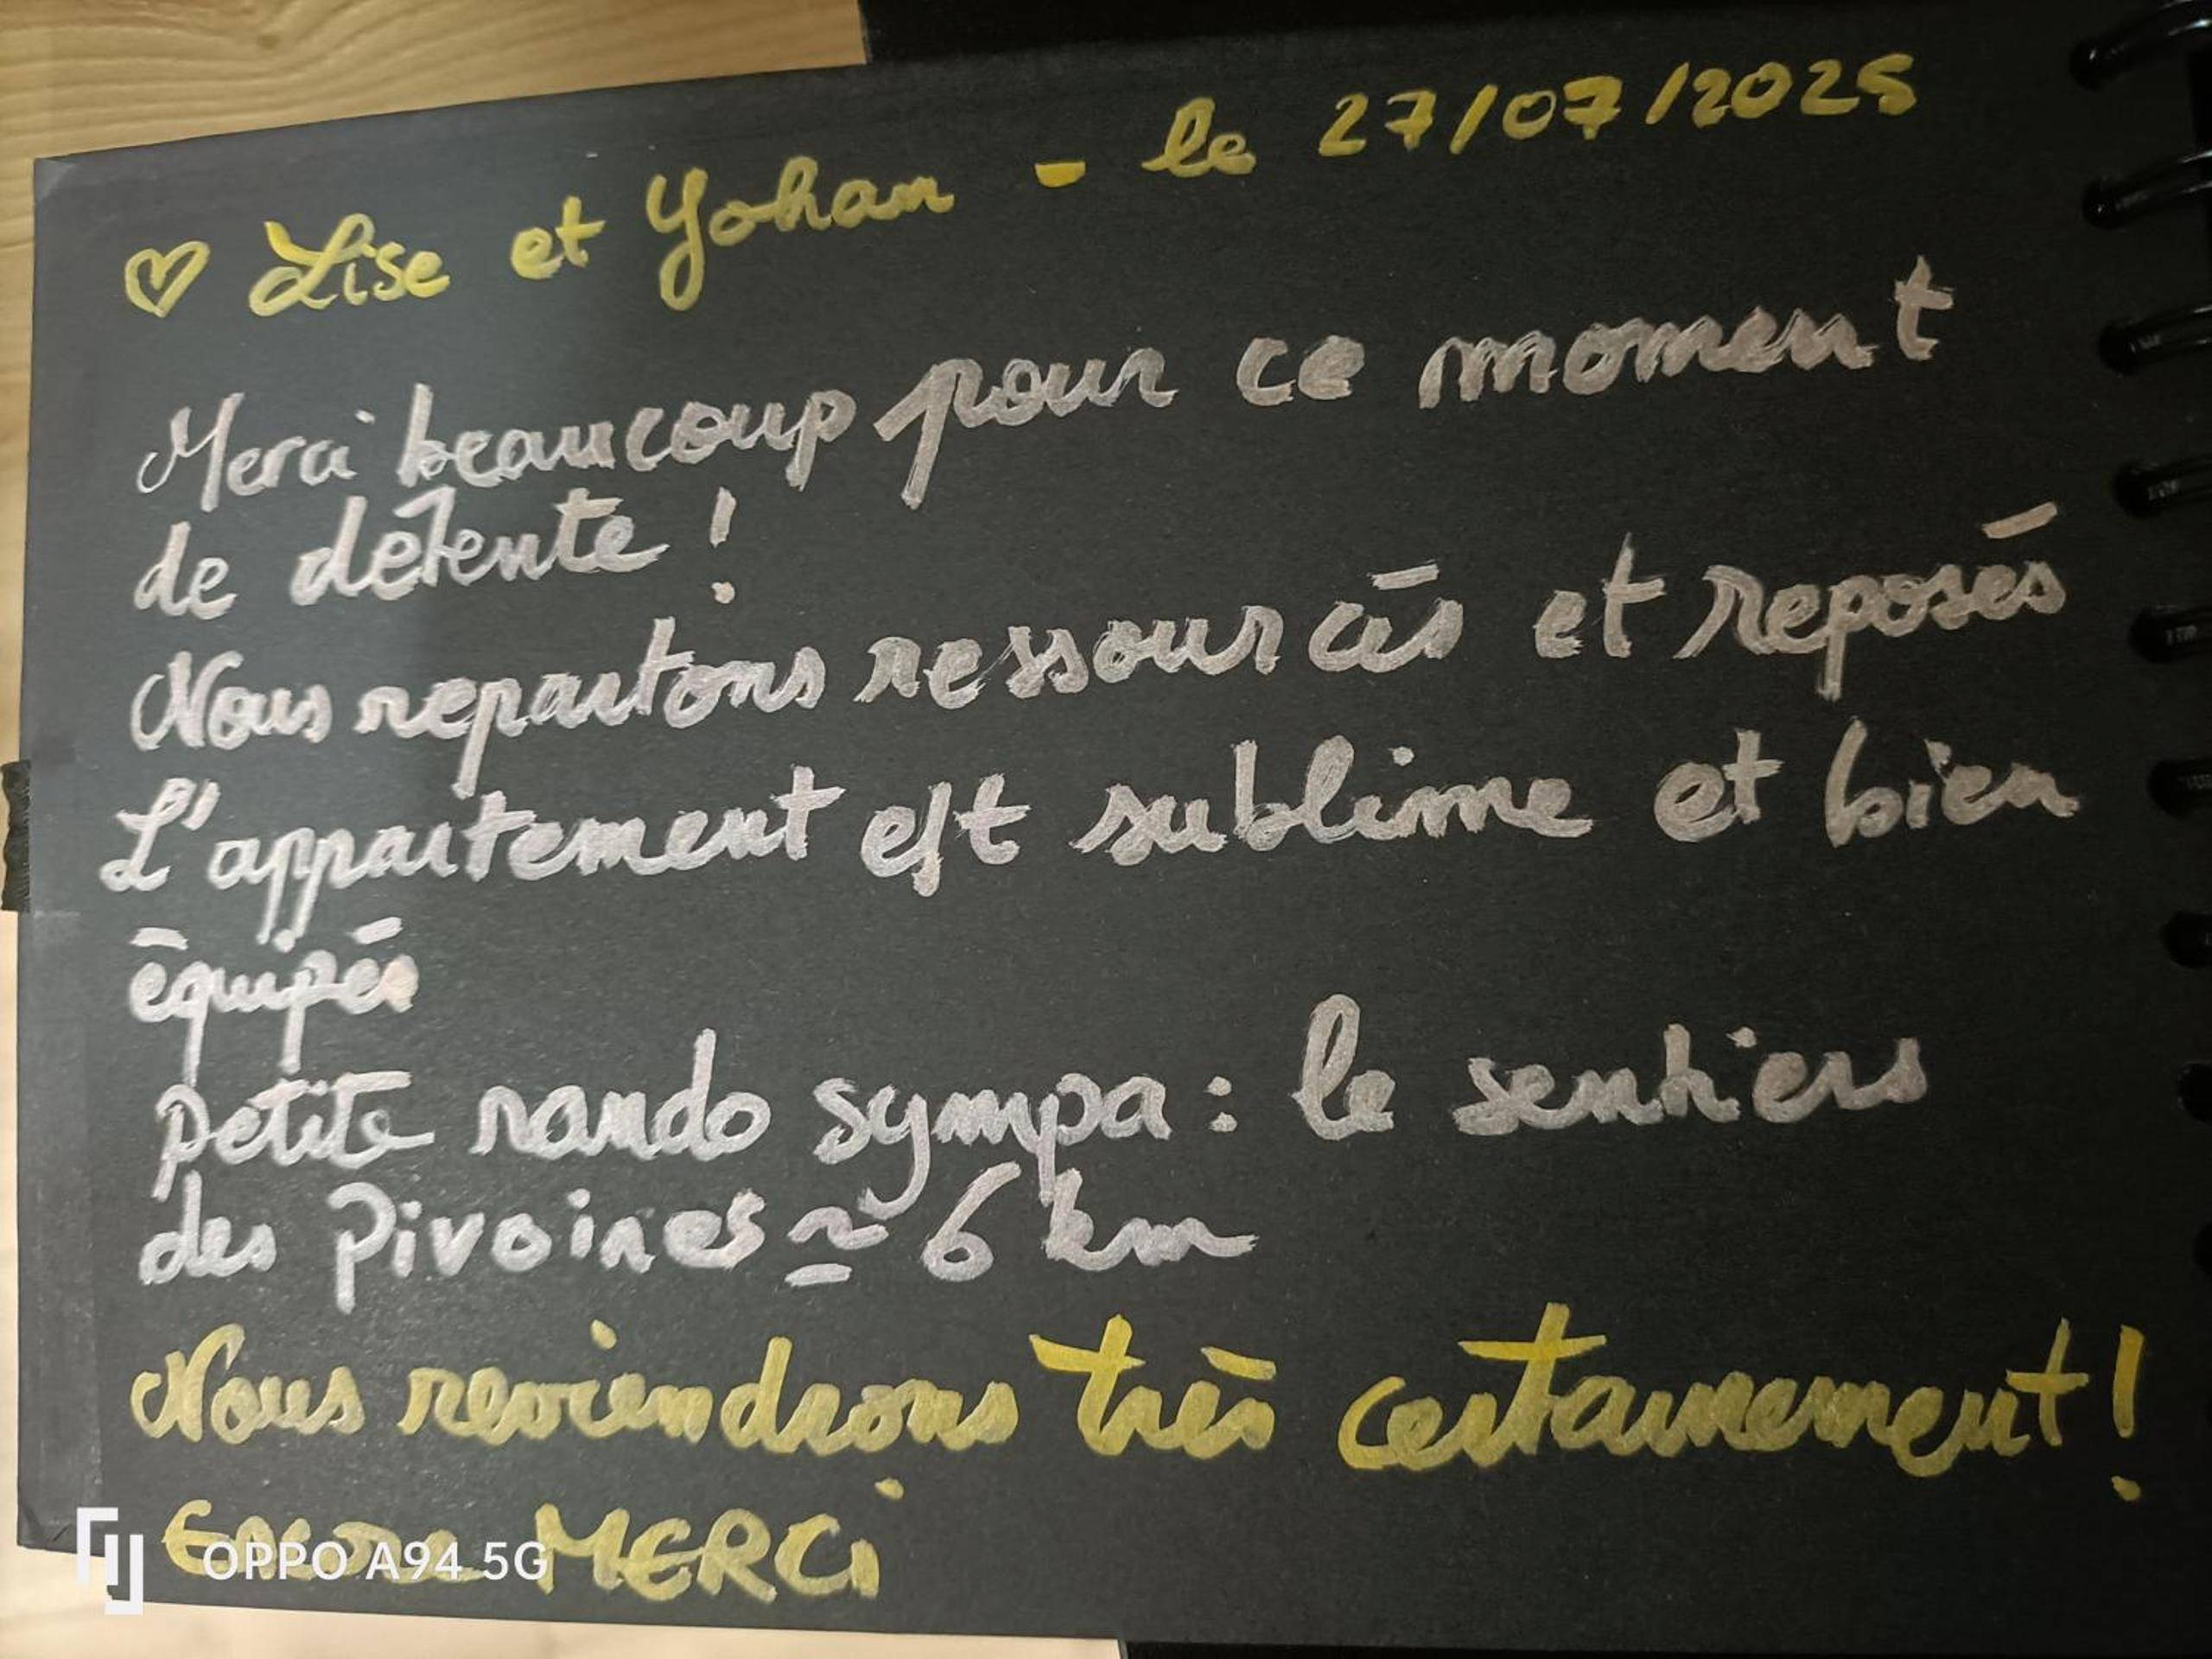 ♡ Lise et Yohan - le 27/07/2025
Merci beaucoup pour ce moment
de détente !
Nous repartons ressourcés et reposés
L'appartement est sublime et bien
équipés
petite rando sympa : le sentiers
des Pivoines ≃ 6 km
Nous reviendrons très certainement !
Encore MERCi
OPPO A94 5G